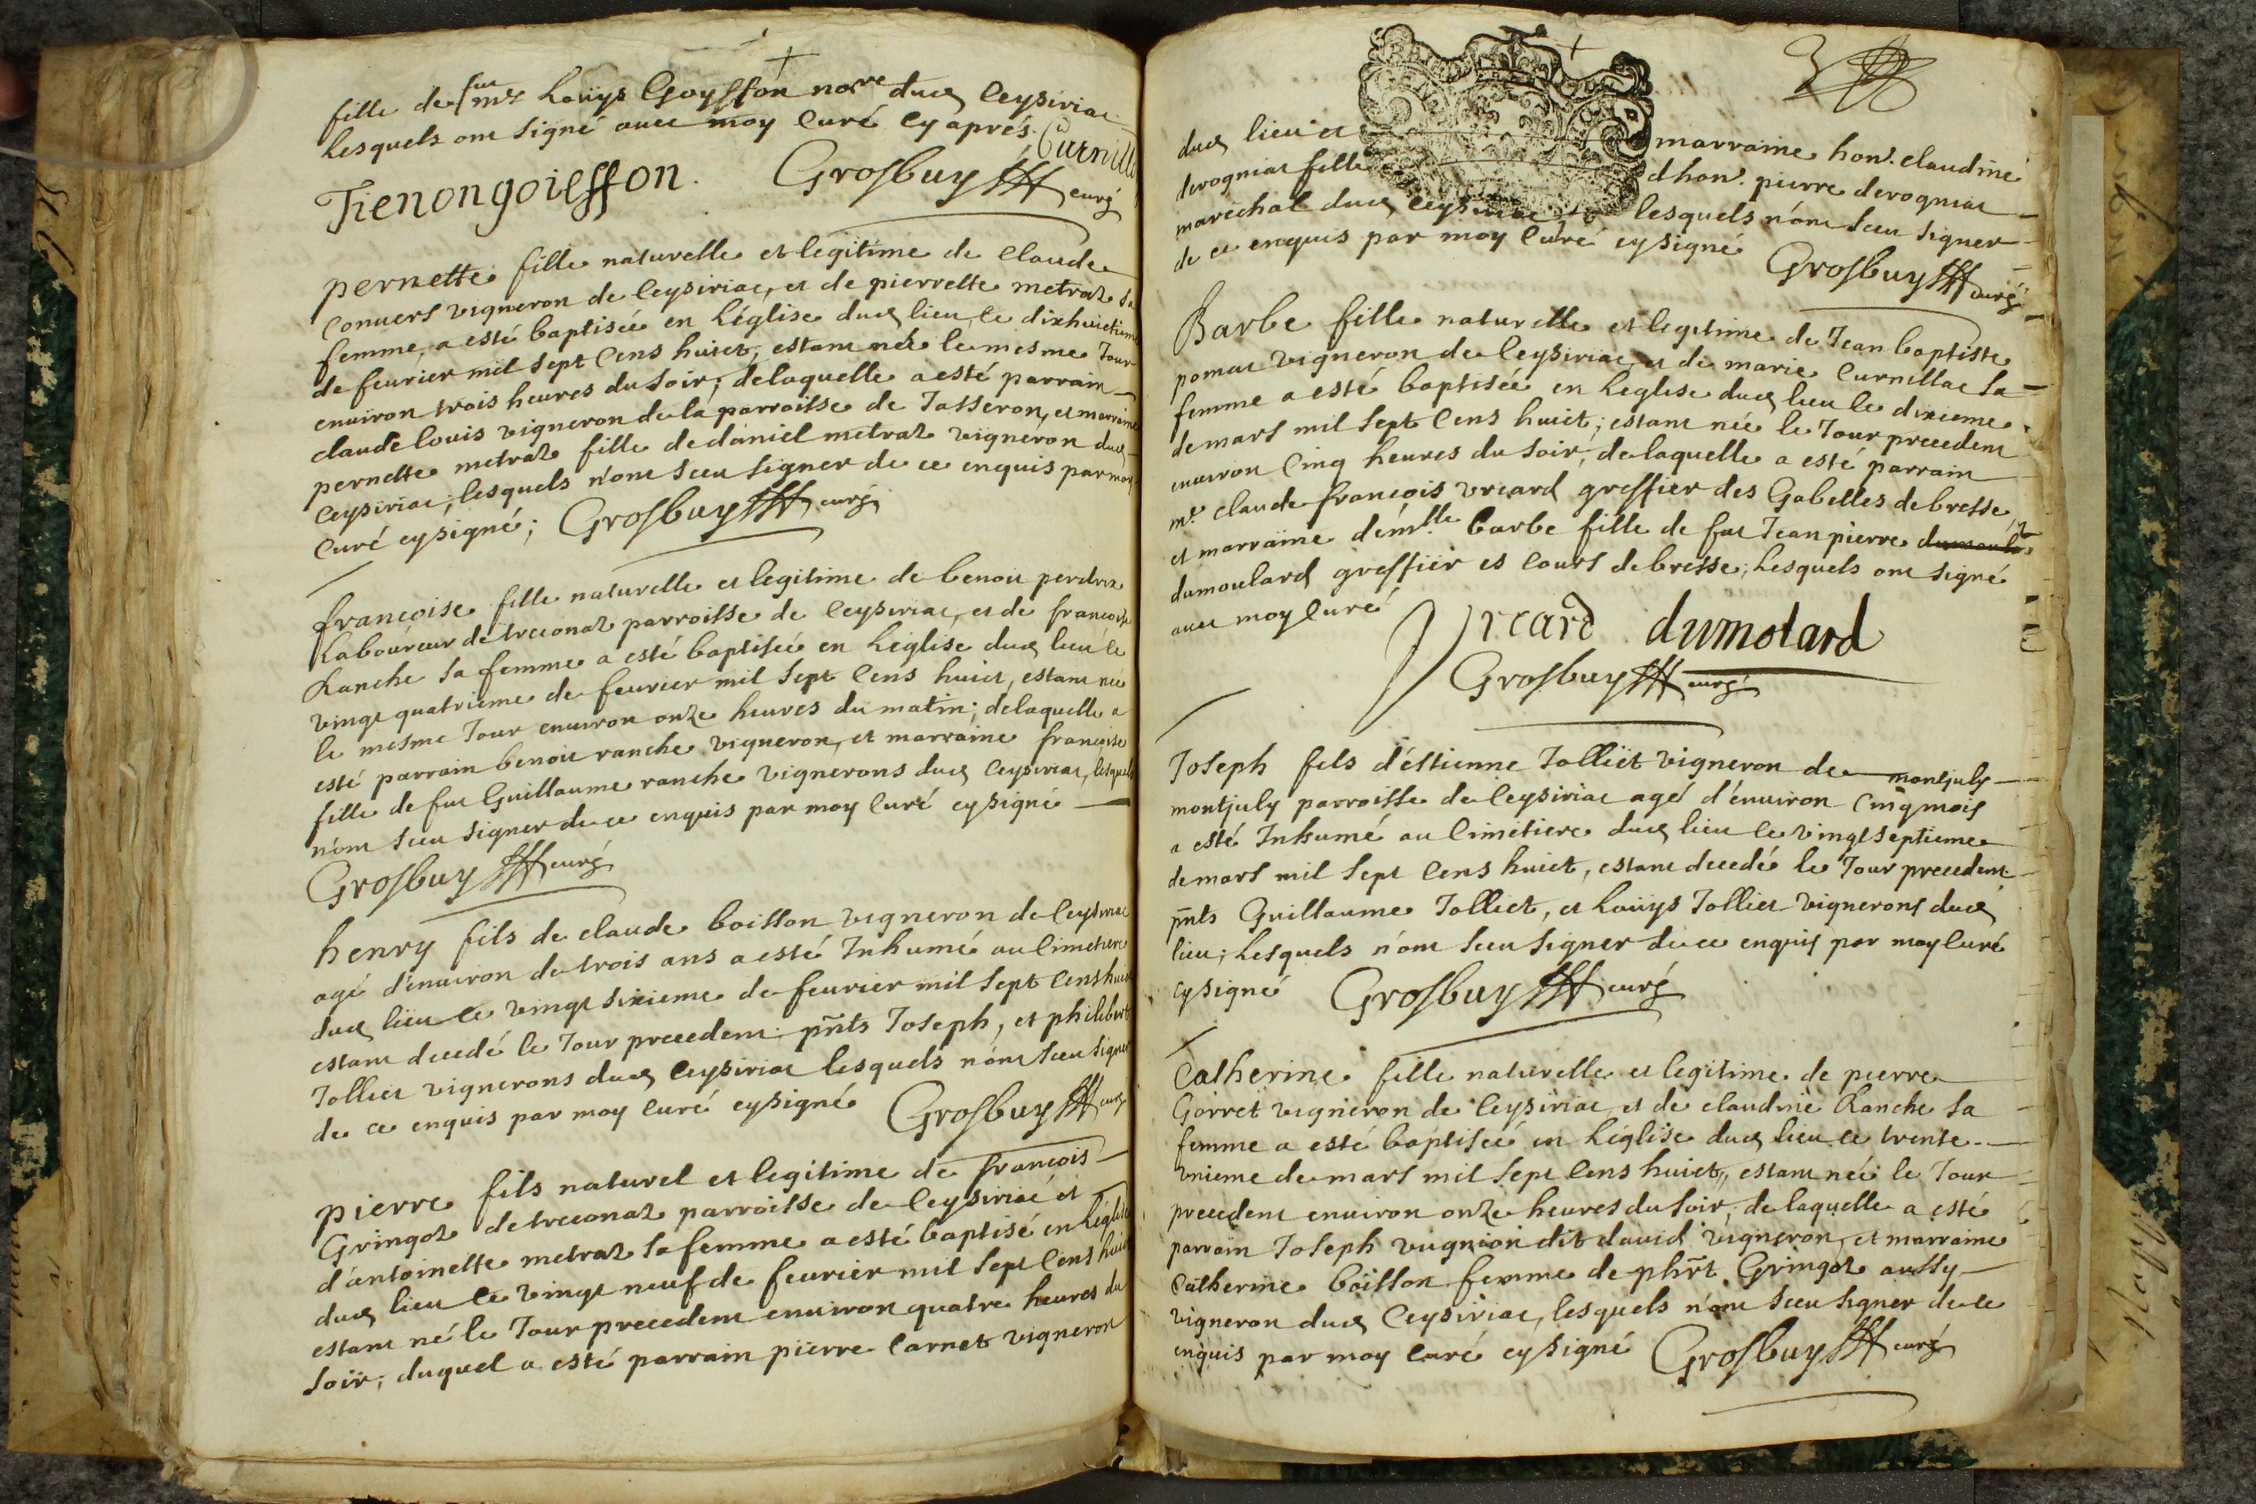 fille de feu mr Louys Goysson no.re dud Ceysiriac
lesquels ont signé avec moy Curé Cy aprés. Curnill
Tienon goiesson. Grosbuy curé
pernette fille naturelle et legitime de Claude
Convers vigneron de Ceysiriac, et de pierrette metraz sa
femme, a esté baptisée en l'église dud lieu le dixhuictieme
de feurier mil sept Cens huict, estant née le mesme Jour
enuiron trois heures du soir; de laquelle a esté parrain
claude louis vigneron de la parroisse de Jasseron, et marraine
pernette metraz fille de daniel metraz vigneron dud
Ceysiriac, lesquels n'ont sceu signer de ce enquis par moy
Curé cysigné; Grosbuy curé
françoise fille naturelle et legitime de benoit perdrix
Laboureur de treconaz parroisse de Ceysiriac, et de françoise
Ranche sa femme a esté baptisée en l'église dud lieu le
vingt quatrieme de feurier mil sept Cens huict, estant née
le mesme Jour enuiron onze heures du matin; de laquelle a
esté parrain benoit ranche vigneron, et marraine françoise
fille de feu Guillaume ranche vignerons dud Ceysiriac, lesquels
n'ont sceu signer de ce enquis par moy Curé cysigné
Grosbuy curé
henry fils de claude boisson vigneron de Ceysiriac
agé d'enuiron de trois ans a esté Inhumé au Cimetiere
dud lieu le vingt sixieme de feurier mil sept Cens huict
estant decedé le Jour precedent: pñts Joseph, et philibert
Jolliet vignerons dud Ceysiriac lesquels n'ont sceu signer
de ce enquis par moy Curé cysigné Grosbuy curé
pierre fils naturel et legitime de françois
Gringoz de treconaz parroisse de Ceysiriac et
d'antoinette metraz sa femme a esté baptisé en l'église
dud lieu le vingt neuf de feurier mil sept Cens huict
estant né le Jour precedent enuiron quatre heures du
soir; duquel a esté parrain pierre Carnet vigneron
3
dud lieu et marraine hon. claudine
derognat fille d'hon. pierre derognat
maréchal dud Ceysiriac lesquels n'ont sceu signer
de ce enquis par moy Curé cysigné Grosbuy curé
Barbe fille naturelle et legitime de Jean baptiste
pomat vigneron de Ceysiriac et de marie Curnillac sa
femme a esté baptisée en l'eglise dud lieu le dixieme
de mars mil sept Cens huict; estant née le Jour precedent
enuiron Cinq heures du soir, de laquelle a esté parrain
mr. claude françois vrcard greffier des Gabelles de bresse,
et marraine dem.lle barbe fille de feu Jean pierre
dumoulard greffier es Cours de bresse; lesquels ont signé
auec moy Curé
Vrcard dumolard
Grosbuy curé
Joseph fils d'éstienne Jolliet vigneron de montjuly
montjuly parroisse de Ceysiriac agé d'énuiron Cinq mois
a esté Inhumé au Cimetiere dud lieu le vingt septieme
de mars mil sept Cens huict, estant decedé le Jour precedent
pñts Guillaume Jolliet, et Louys Jolliet vignerons dud
lieu; lesquels n'ont sceu signer de ce enquis par moy Curé
cysigné Grosbuy curé
Catherine fille naturelle et legitime de pierre
Gorret vigneron de Ceysiriac, et de claudine Ranche sa
femme a esté baptisée en l'église dud lieu le trente
vnieme de mars mil sept Cens huict, estant née le Jour
precedent enuiron onze heures du soir; de laquelle a esté
parrain Joseph vugnion dit david vigneron, et marraine
Catherine boisson femme de phr̃t Gringoz aussy
vigneron dud Ceysiriac, lesquels n'ont sceu signer de ce
enquis par moy Curé cysigné Grosbuy curé